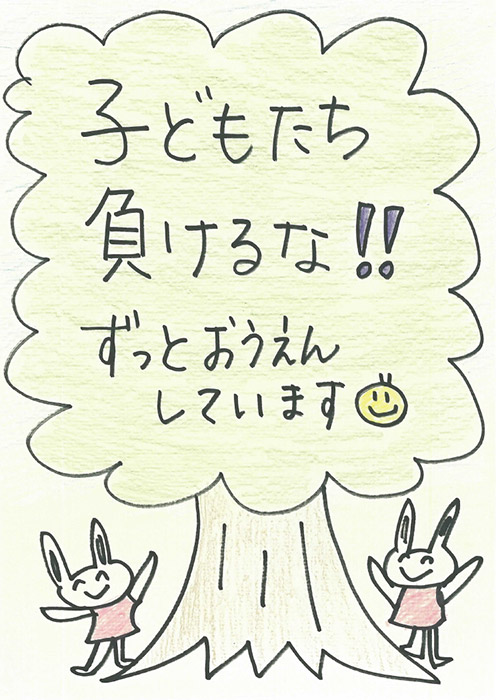 子どもたち
負けるな!!
ずっとおうえん
しています